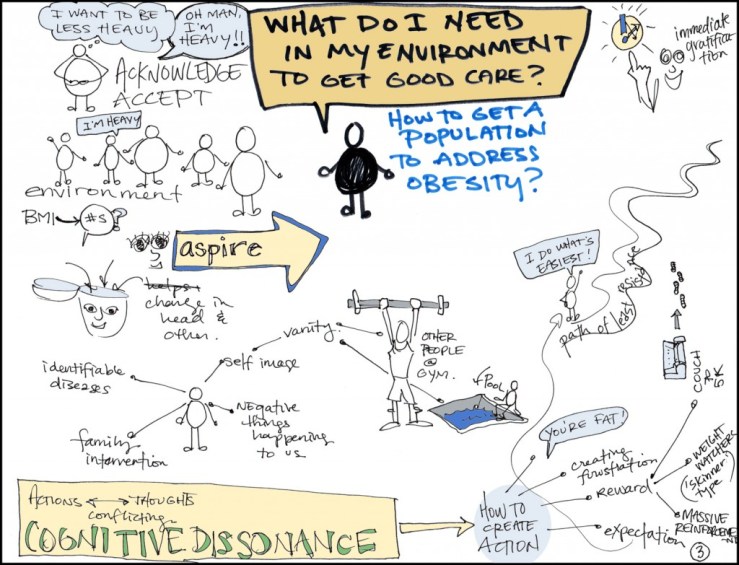 I WANT TO BE
LESS HEAVY
OH MAN,
I'M
HEAVY!!
ACKNOWLEDGE
ACCEPT
WHAT DO I NEED
IN MY ENVIRONMENT
TO GET GOOD CARE?
immediate
gratifica
tion
I'M HEAVY
HOW TO GET A
POPULATION
TO ADDRESS
OBESITY?
environment
BMI
#s?
aspire
helps
change in
head &
other.
I DO WHAT'S
EASIEST!
path of least resistance
vanity.
self image
identifiable
diseases
family
intervention
NEgative
things
happening
to us
OTHER
PEOPLE
@
GYM.
Pool
COUCH
5K
YOU'RE FAT!
creating
frustration
REWARD
WEIGHT
WATCHERS
('skinner'
type)
MASSIVE
REINFORCEMENT
expectation
HOW TO
CREATE
ACTION
ACTIONS THOUGHTS
conflicting
COGNITIVE DISSONANCE
3